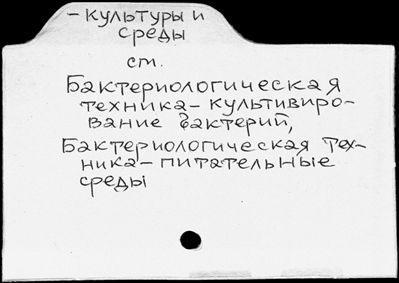 - культуры и
среды
ст.
Бактериологическая
техника - культивиро-
вание бактерий,
Бактериологическая тех-
ника - питательные
среды